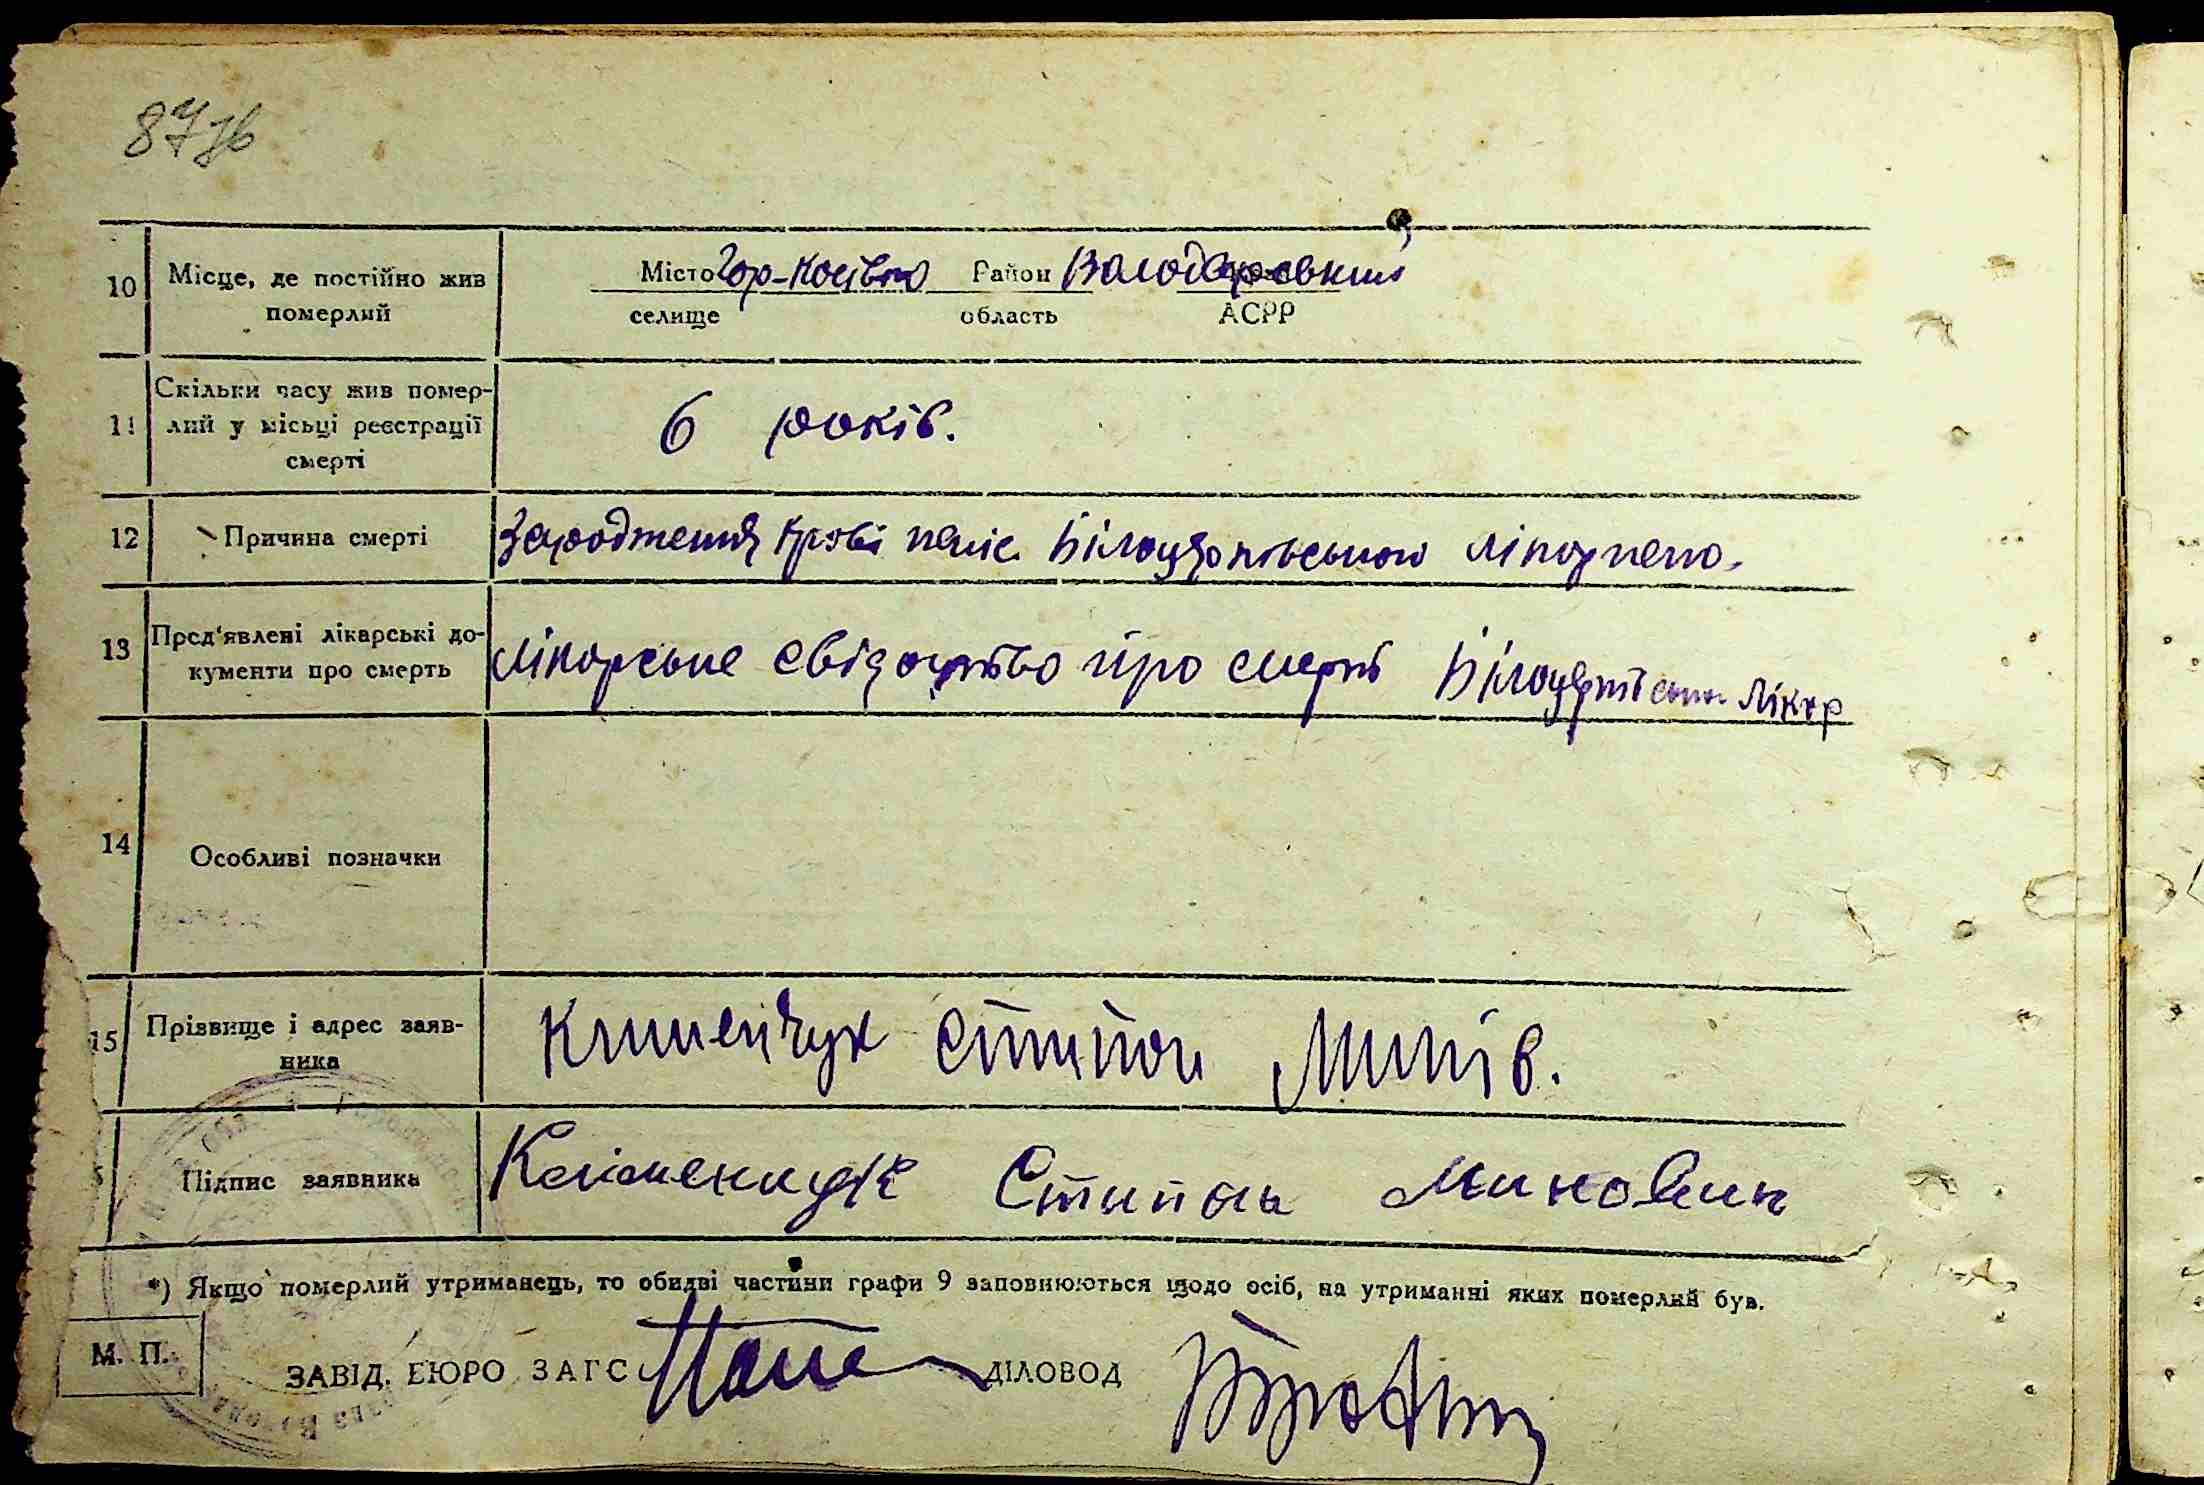 87зв
10 Місце, де постійно жив
померлий
Місто Гор-Косівка Район Володарський
селище область АСРР
11 Скільки часу жив помер-
лий у місьці реєстрації
смерті
6 років.
12 Причина смерті
крові Білоцерківською лікарнею.
13 Пред'явлені лікарські до-
кументи про смерть
Лікарське свідоцтво про смерть Лікар
14 Особливі позначки
15 Прізвище і адрес заяв-
ника
Клименчук Степан
Підпис заявника
Клименчук Степан
*) Якщо померлий утриманець, то обидві частини графи 9 заповнюються щодо осіб, на утриманні яких померлий був.
М. П.
ЗАВІД. БЮРО ЗАГС ДІЛОВОД